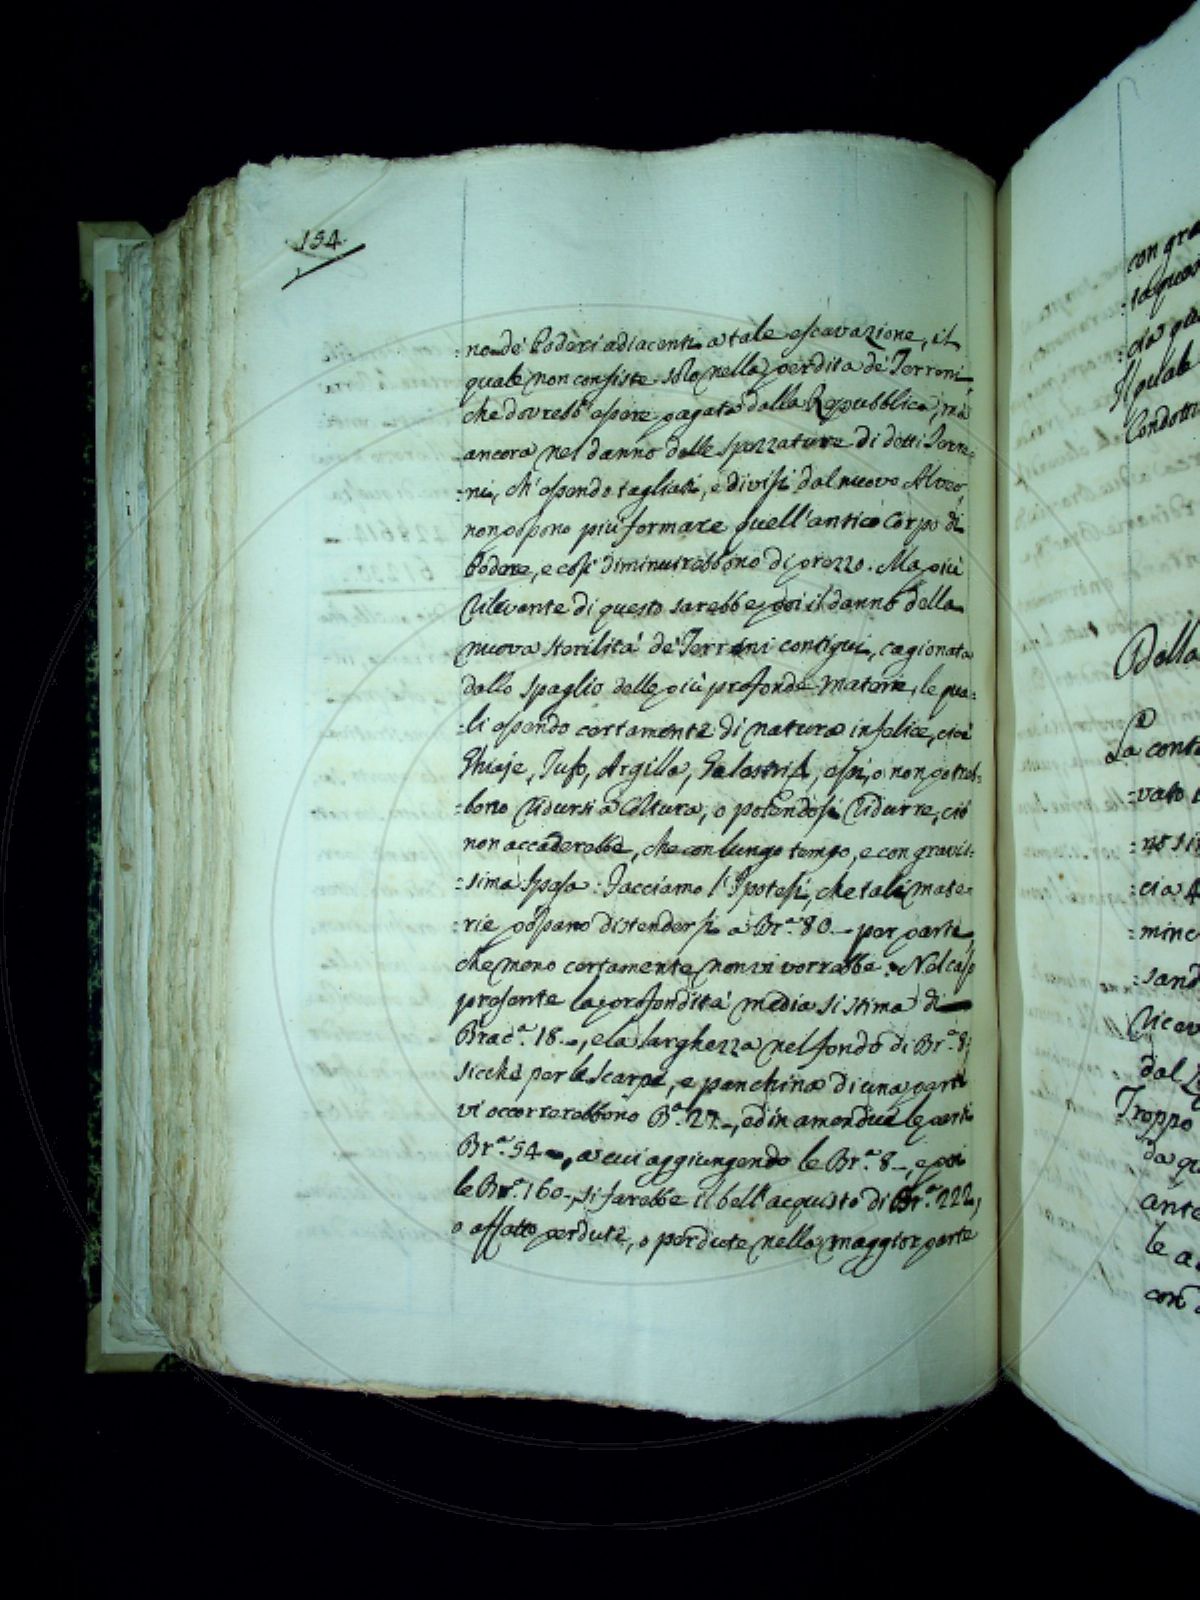 154
:no de' Poderi adiacenti a tale escavazione, il
quale non consiste solo nella perdita de' Terreni,
che dovrebb' essere pagata dalla Repubblica, mà
ancora nel danno delle spezzature di detti Terre:
:ni, ch' essendo tagliati, e divisi dal nuovo Alveo,
non possono più formare quell' antico Corpo di
Podere, e così diminuirebbono di prezzo. Ma più
rilevante di questo sarebbe poi il danno della
nuova sterilità de' Terreni contigui, cagionata
dallo spaglio delle più profonde materie, le qua:
:li essendo certamente di natura infelice, cioè
Ghiaje, Tufo, Argilla, Galestri, essi, o non potreb:
:bono ridursi a Coltura, o potendosi ridurre, ciò
non accaderebbe, che con lungo tempo, e con gravis:
:sima spesa: Facciamo l' Ipotesi, che tali mate:
:rie possano distendersi a Br.ª 80.- per parte,
che meno certamente non vi vorrebbe: Nel caso
presente la profondità media si stima di
Brac.ª 18.-, e la larghezza nel fondo di Br.ª 8;
sicchè per le scarpe, e panchina di una parte
vi occorrerebbono B.ª 27.-, ed in amendue le parti
Br.ª 54-, a cui aggiungendo le Br.ª 8-, e poi
le Br.ª 160-, si farebbe il bell' acquisto di Br.ª 222,
o affatto perdute, o perdute nella maggior parte
con gra
Il quale
Condotti
Della
La conta
vato
:cia 4
:minc
:sand
dal
Troppo
da qu
ante
le a
con